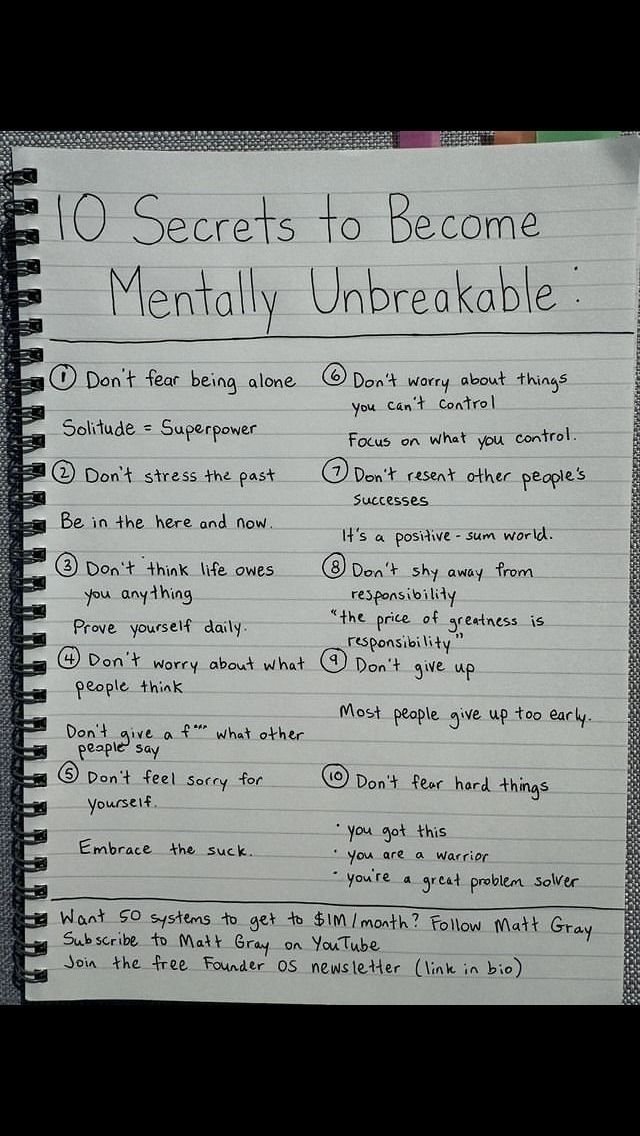 10 Secrets to Become
Mentally Unbreakable:
① Don't fear being alone
Solitude = Superpower
② Don't stress the past
Be in the here and now.
③ Don't think life owes
you anything
Prove yourself daily.
④ Don't worry about what
people think
Don't give a f*** what other
people say
⑤ Don't feel sorry for
yourself.
Embrace the suck.
⑥ Don't worry about things
you can't control
Focus on what you control.
⑦ Don't resent other people's
successes
It's a positive-sum world.
⑧ Don't shy away from
responsibility
"the price of greatness is
responsibility"
⑨ Don't give up
Most people give up too early.
⑩ Don't fear hard things
• you got this
• you are a warrior
• you're a great problem solver
Want 50 systems to get to $1M/month? Follow Matt Gray
Subscribe to Matt Gray on YouTube
Join the free Founder OS newsletter (link in bio)